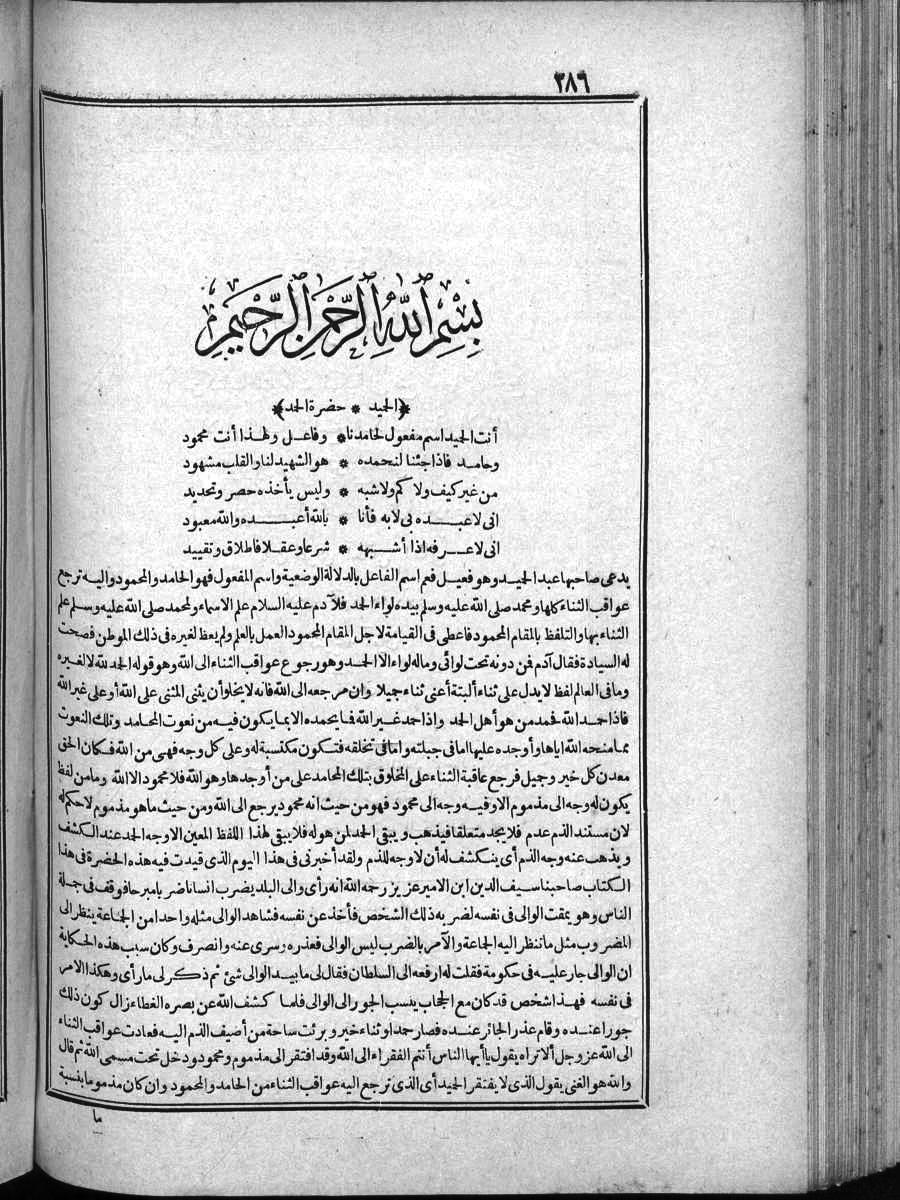 ٢٨٦
بِسْمِ ٱللَّهِ ٱلرَّحْمَٰنِ ٱلرَّحِيمِ
﴿الحميد * حضرة الحمد﴾
أنت الحميد اسم مفعول لحامدنا * وفاعل ولهذا أنت محمود
وحامد فاذا جئنا لنحمده * هو الشهيد لنا والقلب مشهود
من غير كيف ولا كم ولا شبه * وليس يأخذه حصر وتحديد
انى لا عبده بى لا به فأنا * بالله أعبده والله معبود
انى لا عرفه اذا أشبهه * شرعا وعقلا فاطلاق وتقييد
يدعى صاحبها عبد الحميد وهو فعيل فعم اسم الفاعل بالدلالة الوضعية واسم المفعول فهو الحامد والمحمود واليه ترجع
عواقب الثناء كلها ومحمد صلى الله عليه وسلم بيده لواء الحمد فلآدم عليه السلام علم الاسماء ولمحمد صلى الله عليه وسلم علم
الثناء بها والتلفظ بالمقام المحمود فاعطى فى القيامة لاجل المقام المحمود العمل بالعلم ولم يعط لغيره فى ذلك الموطن فصحت
له السيادة فقال آدم فمن دونه تحت لوائى وماله لواء الا الحمد وهو رجوع عواقب الثناء الى الله وهو قوله الحمد لله لا لغيره
وما فى العالم لفظ لا يدل على ثناء ألبتة أعنى ثناء جميلا وان مرجعه الى الله فانه لا يخلو أن يثنى المثنى على الله أو على غير الله
فاذا حمد الله فحمد من هو أهل الحمد واذا حمد غير الله فما يحمده الا بما يكون فيه من نعوت المحامد وتلك النعوت
مما منحه الله اياها وأوجده عليها اما فى جبلته واما فى تخلقه فتكون مكتسبة له وعلى كل وجه فهى من الله فكان الحق
معدن كل خير وجميل فرجع عاقبة الثناء على المخلوق بتلك المحامد على من أوجدها وهو الله فلا محمود الا الله وما من لفظ
يكون له وجه الى مذموم الا وفيه وجه الى محمود فهو من حيث انه محمود يرجع الى الله ومن حيث ما هو مذموم لا حكم له
لان مستند الذم عدم فلا يجد متعلقا فيذهب ويبقى الحمد لمن هو له فلا يبقى لهذا اللفظ المعين الا وجه الحمد عند الكشف
ويذهب عنه وجه الذم أى ينكشف له أن لا وجه للذم ولقد أخبرنى فى هذا اليوم الذى قيدت فيه هذه الحضرة فى هذا
الكتاب صاحبنا سيف الدين ابن الامير عزيز رحمه الله انه رأى والى البلد يضرب انسانا ضربا مبرحا فوقف فى جملة
الناس وهو يمقت الوالى فى نفسه لضربه ذلك الشخص فأخذ عن نفسه فشاهد الوالى مثله واحدا من الجماعة ينظر الى
المضروب مثل ما تنظر اليه الجماعة والآمر بالضرب ليس الوالى فعذره وسرى عنه وانصرف وكان سبب هذه الحكاية
ان الوالى جار عليه فى حكومة فقلت له ارفعه الى السلطان فقال لى ما بيد الوالى شئ ثم ذكر لى ما رأى وهكذا الامر
فى نفسه فهذا شخص قد كان مع الحجاب ينسب الجور الى الوالى فلما كشف الله عن بصره الغطاء زال كون ذلك
جورا عنده وقام عذر الجائر عنده فصار حمدا وثناء خير وبرئت ساحة من أضيف الذم اليه فعادت عواقب الثناء
الى الله عز وجل ألا تراه يقول يا أيها الناس أنتم الفقراء الى الله وقد افتقر الى مذموم ومحمود ودخل تحت مسمى الله ثم قال
والله هو الغنى يقول الذى لا يفتقر الحميد أى الذى ترجع اليه عواقب الثناء من الحامد والمحمود وان كان مذموما بنسبة
ما